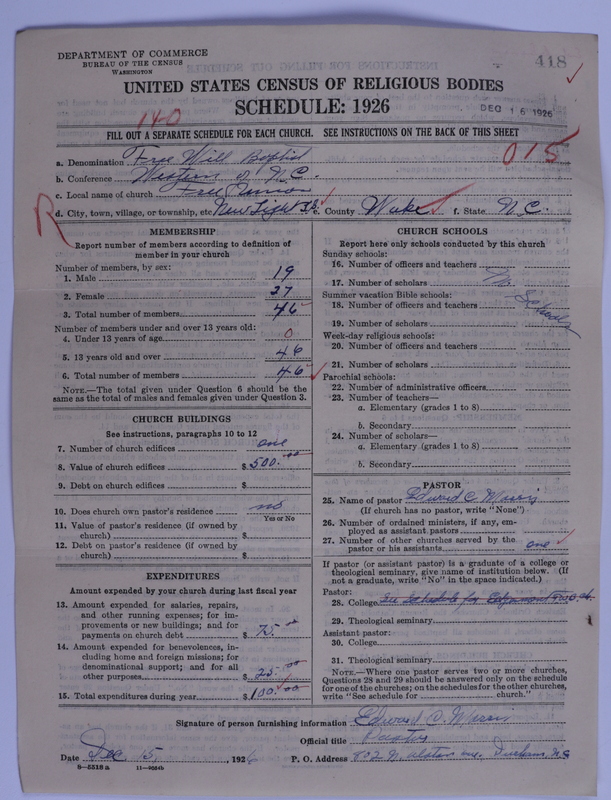 DEPARTMENT OF COMMERCE
BUREAU OF THE CENSUS
WASHINGTON
418
UNITED STATES CENSUS OF RELIGIOUS BODIES
SCHEDULE: 1926
DEC 16 1926
140
FILL OUT A SEPARATE SCHEDULE FOR EACH CHURCH. SEE INSTRUCTIONS ON THE BACK OF THIS SHEET
015
a. Denomination Free Will Baptist
b. Conference Western of N.C.
c. Local name of church Free
R
d. City, town, village, or township, etc. New Light e. County Wake f. State N.C.
MEMBERSHIP
Report number of members according to definition of
member in your church
Number of members, by sex:
1. Male 19
2. Female 27
3. Total number of members 46
Number of members under and over 13 years old:
4. Under 13 years of age 0
5. 13 years old and over 46
6. Total number of members 46
NOTE.—The total given under Question 6 should be
same as the total of males and females given under Question 3.
CHURCH BUILDINGS
See instructions, paragraphs 10 to 12
7. Number of church edifices one
8. Value of church edifices $500.00
9. Debt on church edifices $
10. Does church own pastor's residence no
Yes or No
11. Value of pastor's residence (if owned by
church) $
12. Debt on pastor's residence (if owned by
church) $
EXPENDITURES
Amount expended by your church during last fiscal year
13. Amount expended for salaries, repairs,
and other running expenses; for im-
provements or new buildings; and for
payments on church debt $75.00
14. Amount expended for benevolences, in-
cluding home and foreign missions; for
denominational support; and for all
other purposes $25.00
15. Total expenditures during year $100.00
CHURCH SCHOOLS
Report here only schools conducted by this church
Sunday schools:
16. Number of officers and teachers
17. Number of scholars
Summer vacation Bible schools:
18. Number of officers and teachers
19. Number of scholars
Schools
Week-day religious schools:
20. Number of officers and teachers
21. Number of scholars
Parochial schools:
22. Number of administrative officers
23. Number of teachers—
a. Elementary (grades 1 to 8)
b. Secondary
24. Number of scholars—
a. Elementary (grades 1 to 8)
b. Secondary
PASTOR
25. Name of pastor Edward C. Morris
(If church has no pastor, write "None")
26. Number of ordained ministers, if any, em-
ployed as assistant pastors
27. Number of other churches served by the
pastor or his assistants one
If pastor (or assistant pastor) is a graduate of a college or
theological seminary, give name of institution below. (If
not a graduate, write "No" in the space indicated.)
Pastor:
28. College See Schedule for Edgemont
29. Theological seminary
Assistant pastor:
30. College
31. Theological seminary
NOTE.—Where one pastor serves two or more churches,
Questions 28 and 29 should be answered only on the schedule
for one of the churches; on the schedules for the other churches,
write "See schedule for church."
Signature of person furnishing information Edward C. Morris
Official title Pastor
Date Dec 15, 1926 P. O. Address 802 N. Alston ave. Durham, N.C.
8-5518 a 11-9054b